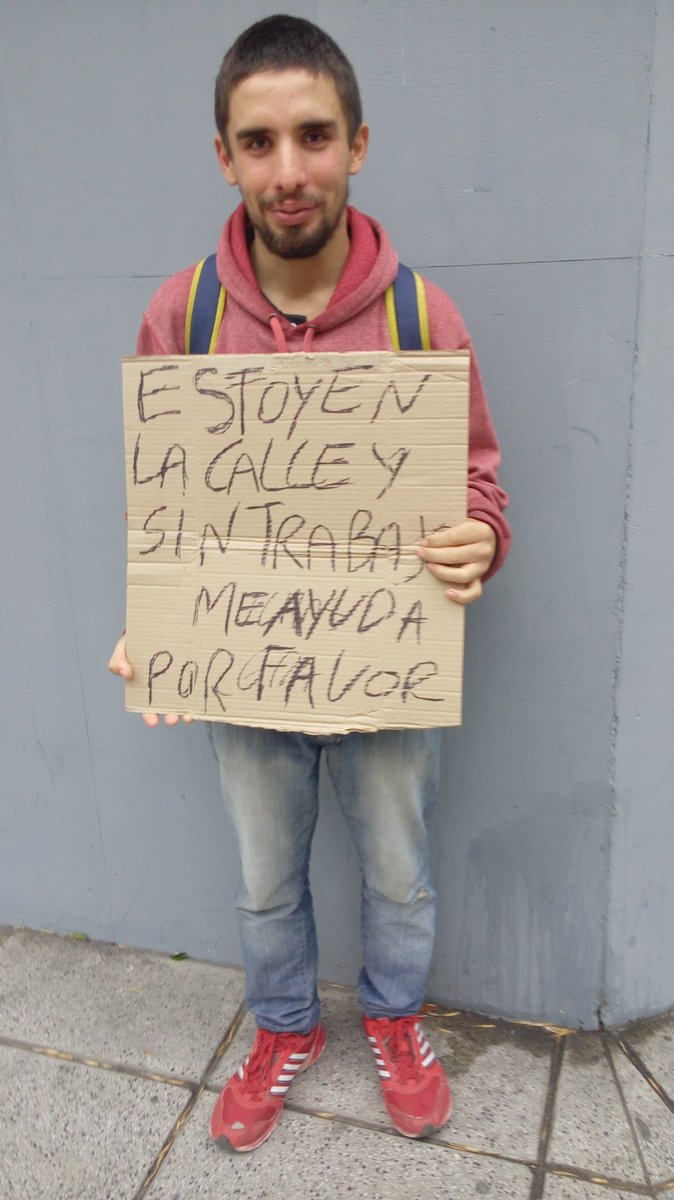 ESTOY EN
LA CALLE Y
SIN TRABAJO
ME AYUDA
POR FAVOR